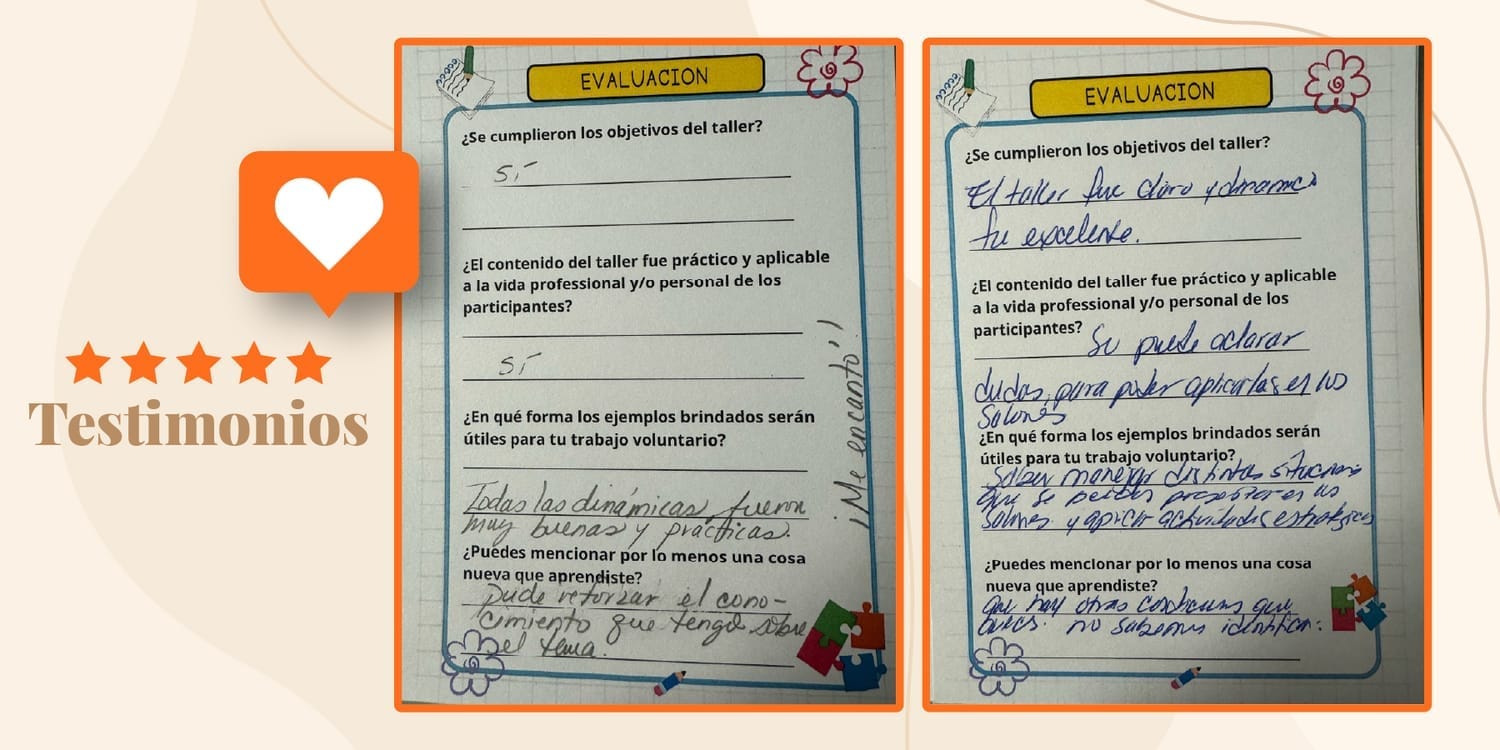 Testimonios
EVALUACION
¿Se cumplieron los objetivos del taller?
Sí
¿El contenido del taller fue práctico y aplicable
a la vida professional y/o personal de los
participantes?
Sí
¿En qué forma los ejemplos brindados serán
útiles para tu trabajo voluntario?
Todas las dinámicas, fueron
muy buenas y prácticas.
¿Puedes mencionar por lo menos una cosa
nueva que aprendiste?
Pude reforzar el cono-
cimiento que tengo sobre
el tema.
¡Me encanto!
EVALUACION
¿Se cumplieron los objetivos del taller?
El taller fue claro y dinamico
fue excelente.
¿El contenido del taller fue práctico y aplicable
a la vida professional y/o personal de los
participantes?
Se puede aclarar
dudas, para poder aplicarlas en los
Salones
¿En qué forma los ejemplos brindados serán
útiles para tu trabajo voluntario?
Saber manejar distintas situaciones
que se en los
Salones y aplicar actividades estrategicas
¿Puedes mencionar por lo menos una cosa
nueva que aprendiste?
Que hay otras que
no sabemos identificar.